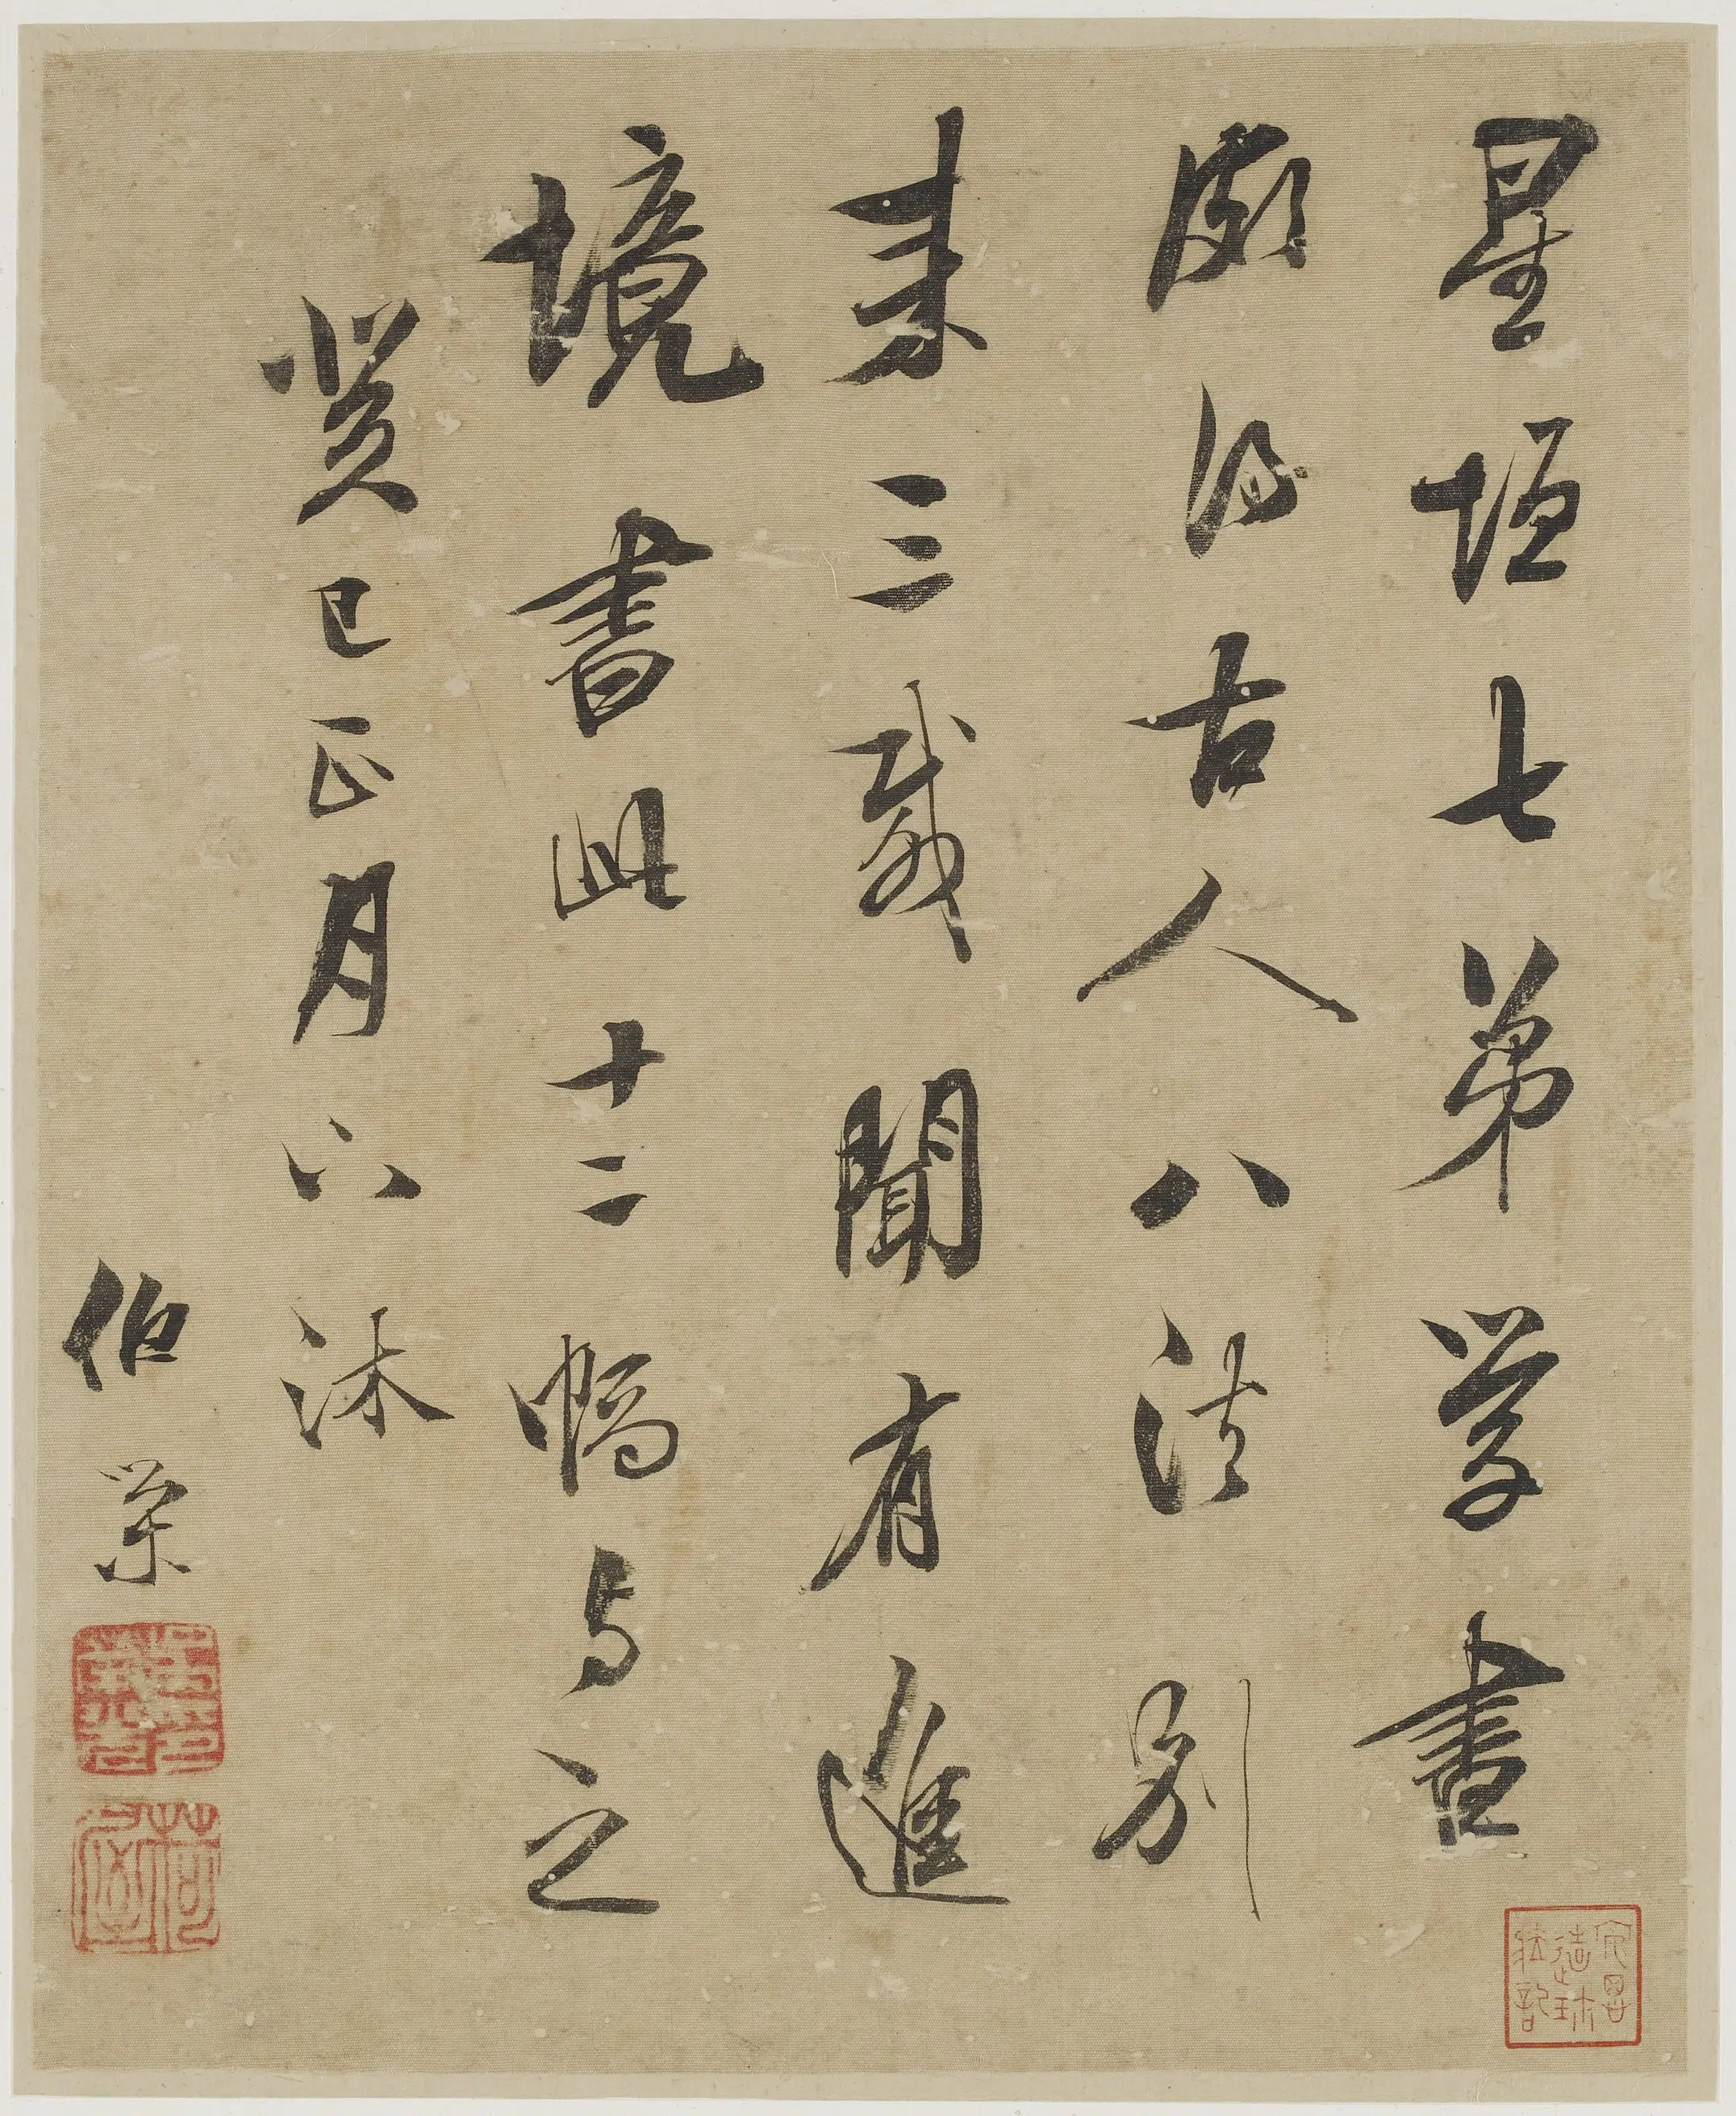 星垣七弟学書
頗得古人八法別
来三載聞有進
境書此十二幅与之
癸巳正月六沐
伯榮